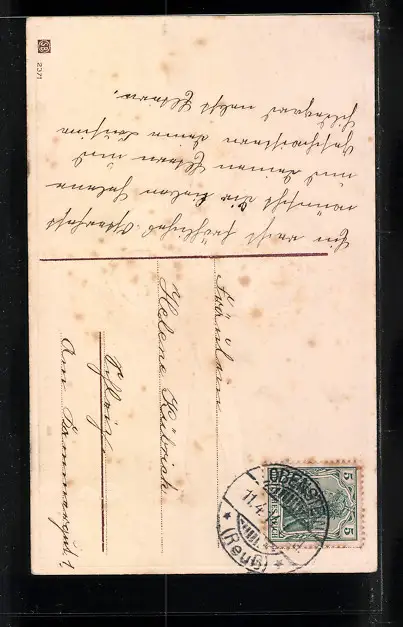 Ein recht fröhliches Osterfest
wünscht Dir liebe Helene
und Deinen Eltern und
Geschwistern Deine Cousine
Hildegard nebst Eltern.
Fräulein
Helene Kübrich
Schleiz
Am
1
OBER
11.4.
(Reuß)
5
5
2371